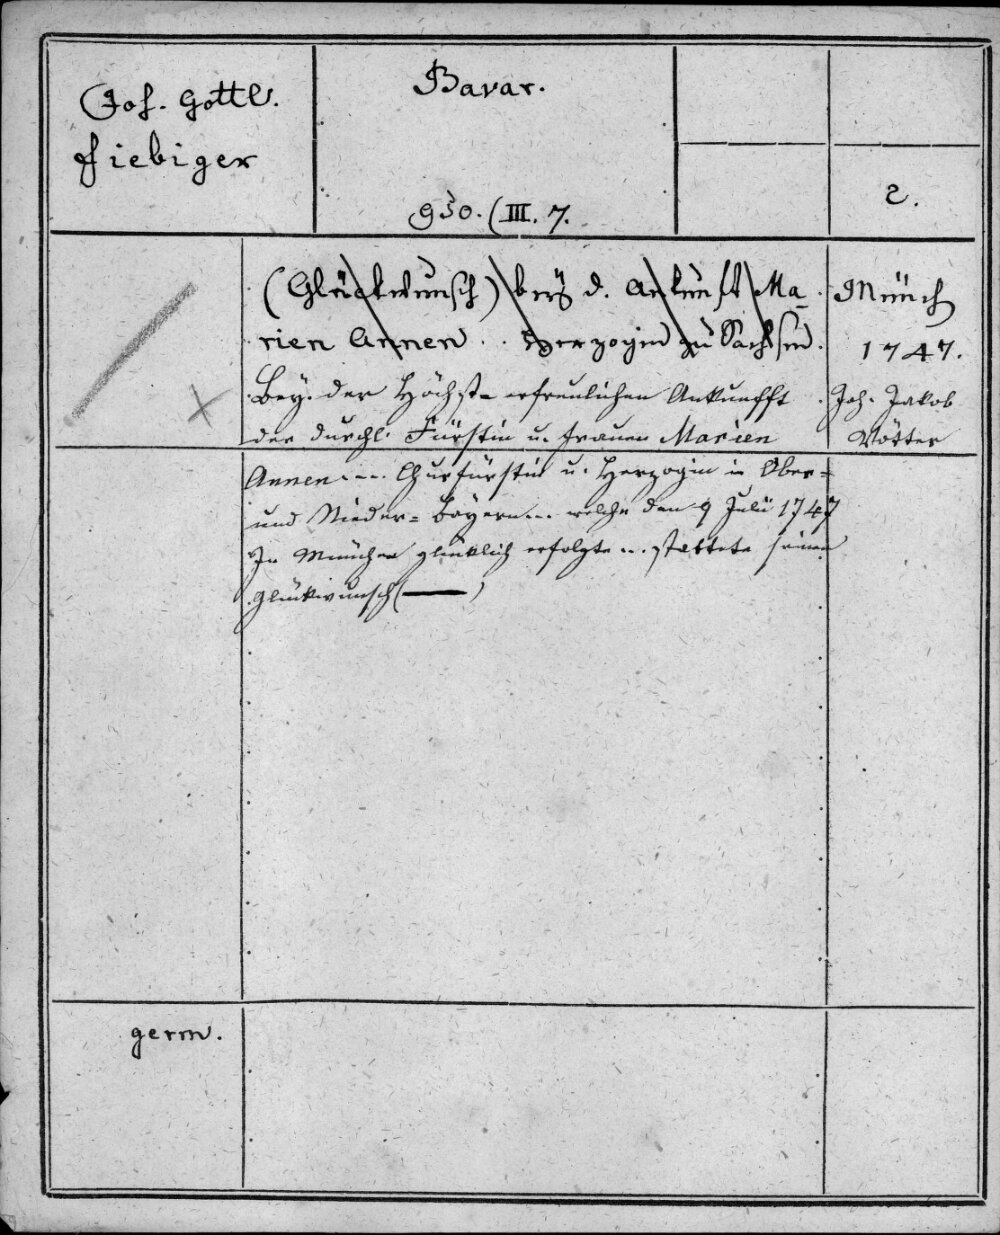 Joh. Gottl.
Fiebiger
Bavar.
950. (III. 7.
2.
(Glückwunsch) bey d. Ankunft Ma-
rien Annen . . Herzogin zu Sachsen.
Münch
1747.
Bey der Höchst- erfreulichen Ankunfft
der durchl. Fürstin u. Frauen Marien
Joh. Jakob
Vötter
Annen .... Churfürstin u. Herzogin in Ober-
und Nieder-Bayern ... welche den 9 Julii 1747
In München glücklich erfolgte ... stattete seinen
Glückwunsch (——)
germ.